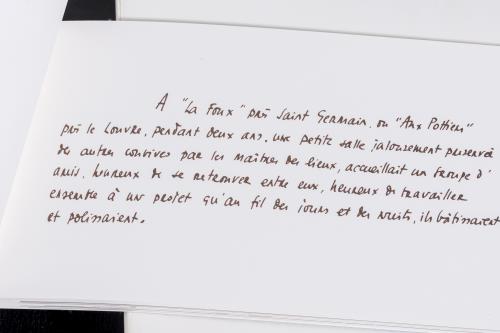 A "La Foux" près Saint Germain, ou "Aux Pottiers"
près le Louvre, pendant deux ans, une petite salle jalousement préservée
des autres convives par les maîtres des lieux, accueillait un troupe d'
amis, heureux de se retrouver entre eux, heureux de travailler
ensemble à un projet qu'au fil des jours et des nuits, ils bâtissaient
et polissaient.